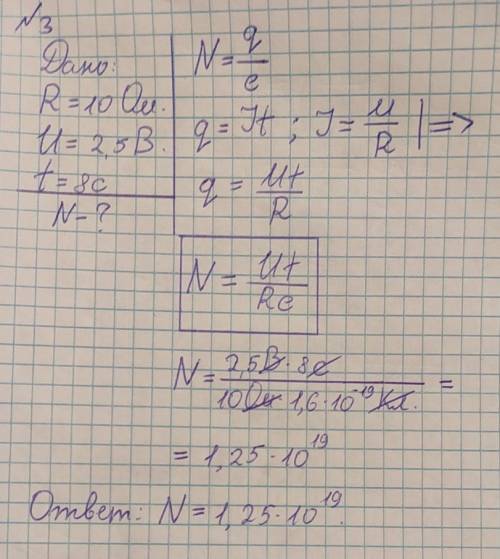 №3
Дано:
R = 10 Ом.
U = 2,5 В.
t = 8 с
N - ?
N = q/e
q = It ; I = U/R | =>
q = Ut/R
N = Ut/Re
N = 2,5 В · 8 с / 10 Ом · 1,6 · 10^-19 Кл. =
= 1,25 · 10^19
Ответ: N = 1,25 · 10^19.